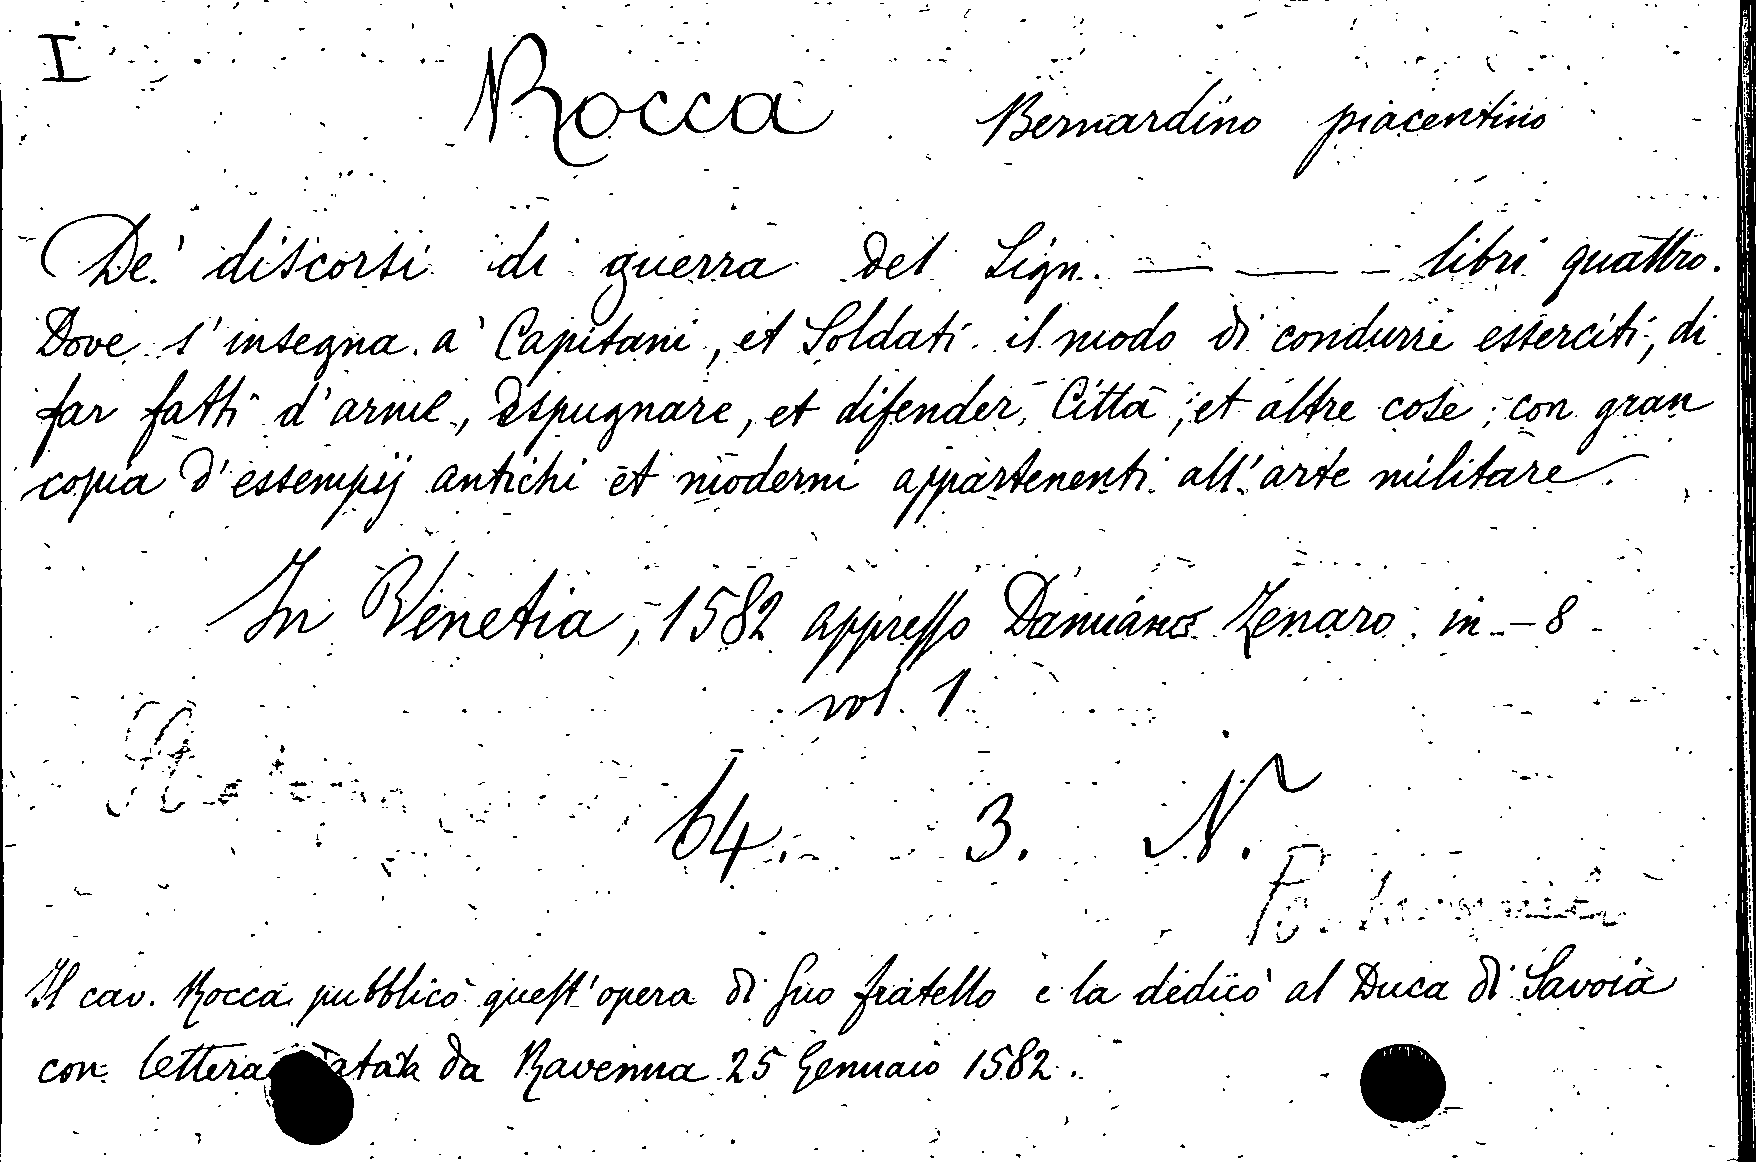 I
Rocca Bernardino piacentino
De' discorsi di guerra del Sign. — — - libri quattro.
Dove s'insegna a' Capitani, et Soldati il modo di condurre esserciti, di
far fatti d'arme, Espugnare, et difender Città, et altre cose, con gran
copia d'essempij antichi et moderni appartenenti all'arte militare.
In Venetia, 1582 appresso Damiano Zenaro in-8
vol. 1
64. 3. N.
Il cav. Rocca pubblicò quest'opera di suo fratello e la dedicò al Duca di Savoia
con lettera da Ravenna 25 Gennaio 1582.